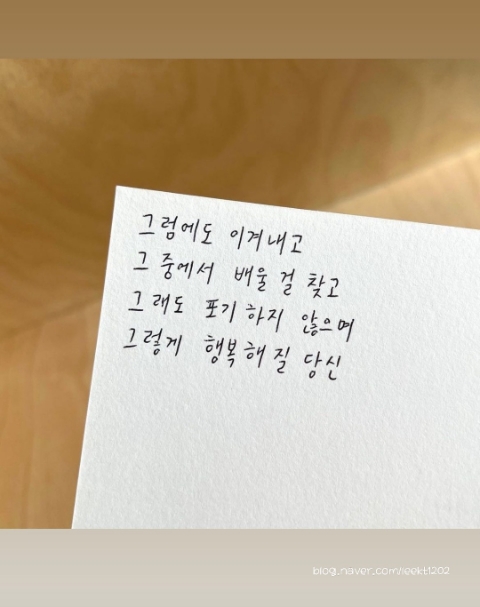 그럼에도 이겨내고
그 중에서 배울 걸 찾고
그래도 포기 하지 않으며
그렇게 행복해질 당신
blog.naver.com/leekt1202